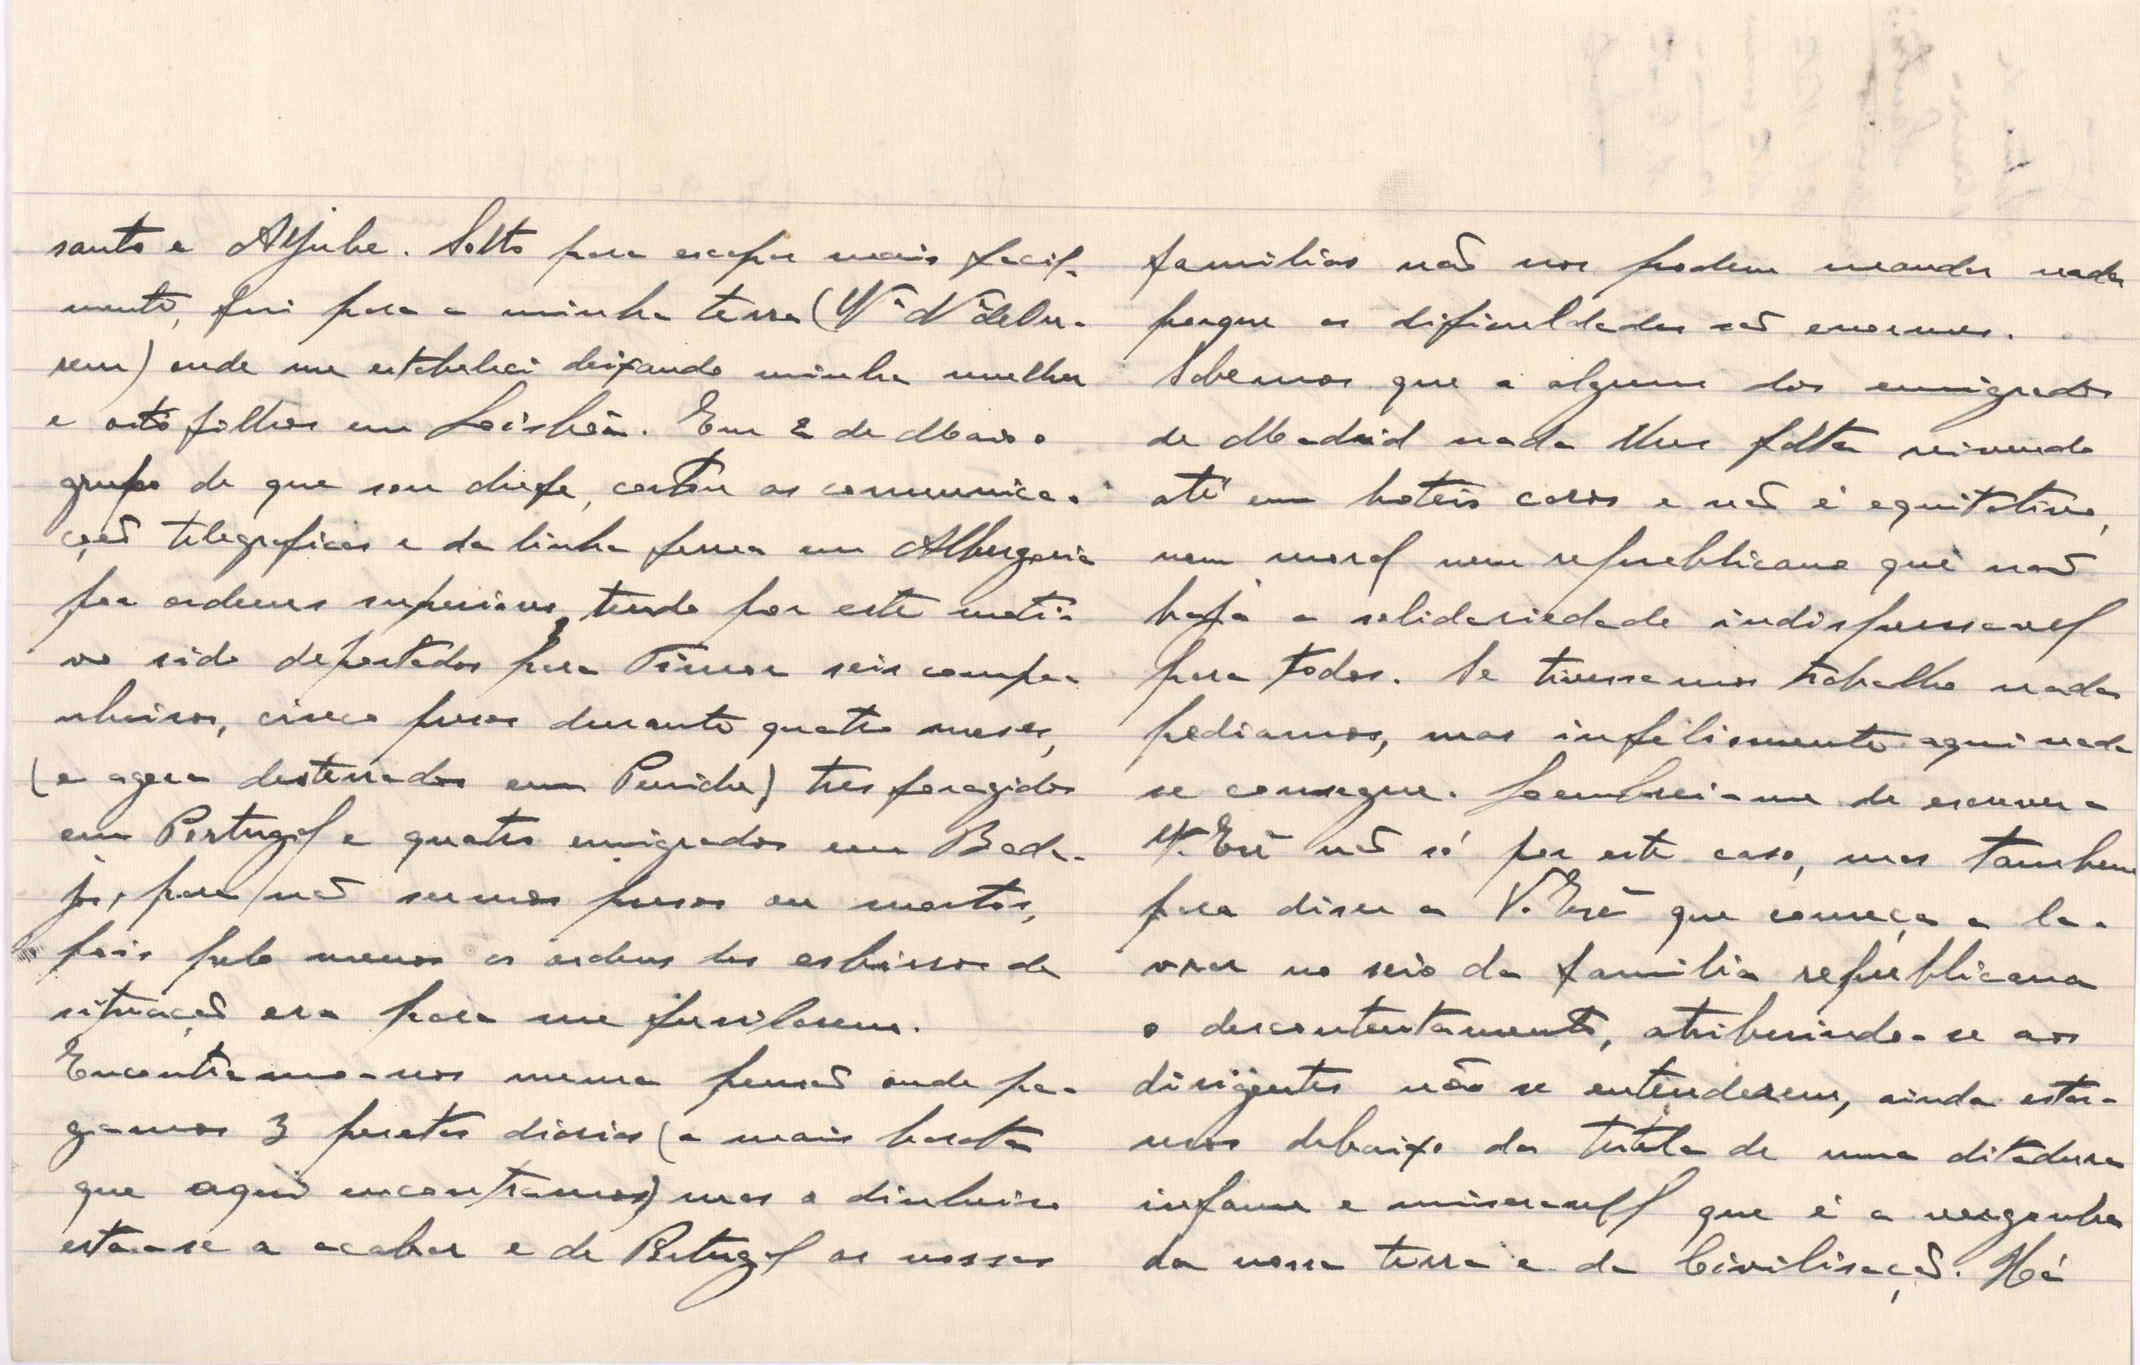 santo e Aljube. Solto para escapar mais facil-
mente, fui para a minha terra (Vª Nª de Ou-
rem) onde me estabeleci deixando minha mulher
e oito filhos em Lisbôa. Em 2 de Maio o
grupo de que sou chefe, cortou as comunica-
ções telegraficas e da linha ferrea em Albergaria
por ordens superiores, tendo por este moti-
vo sido deportados para Timor seis compa-
nheiros, cinco presos durante quatro meses,
(e agora desterrados em Peniche) tres foragidos
em Portugal e quatro emigrados em Bada-
jos, para não sermos presos ou mortos,
pois pelo menos as ordens dos esbirros da
situação era para me fusilarem.
Encontramo-nos numa pensão onde pa-
gamos 3 pesetas diarias (a mais barata
que aqui encontramos) mas o dinheiro
está-se a acabar e de Portugal as nossas
familias não nos podem mandar nada
porque as dificuldades são enormes.
Sabemos que a alguns dos emigrados
de Madrid nada lhes falta vivendo
até em hoteis caros e não é equitativo,
nem moral nem republicano que não
haja a solidariedade indispensavel
para todos. Se tivessemos trabalho nada
pediamos, mas infelismente aqui nada
se consegue. Lembrei-me de escrever a
V. Exª não só por este caso, mas tambem
para diser a V. Exª que começa a la-
vrar no seio da familia republicana
o descontentamento, atribuindo-se aos
dirigentes não se entenderem, ainda estar-
mos debaixo da tutela de uma ditadura
infame e miseravel que é a vergonha
da nossa terra e da Civilisação. Há